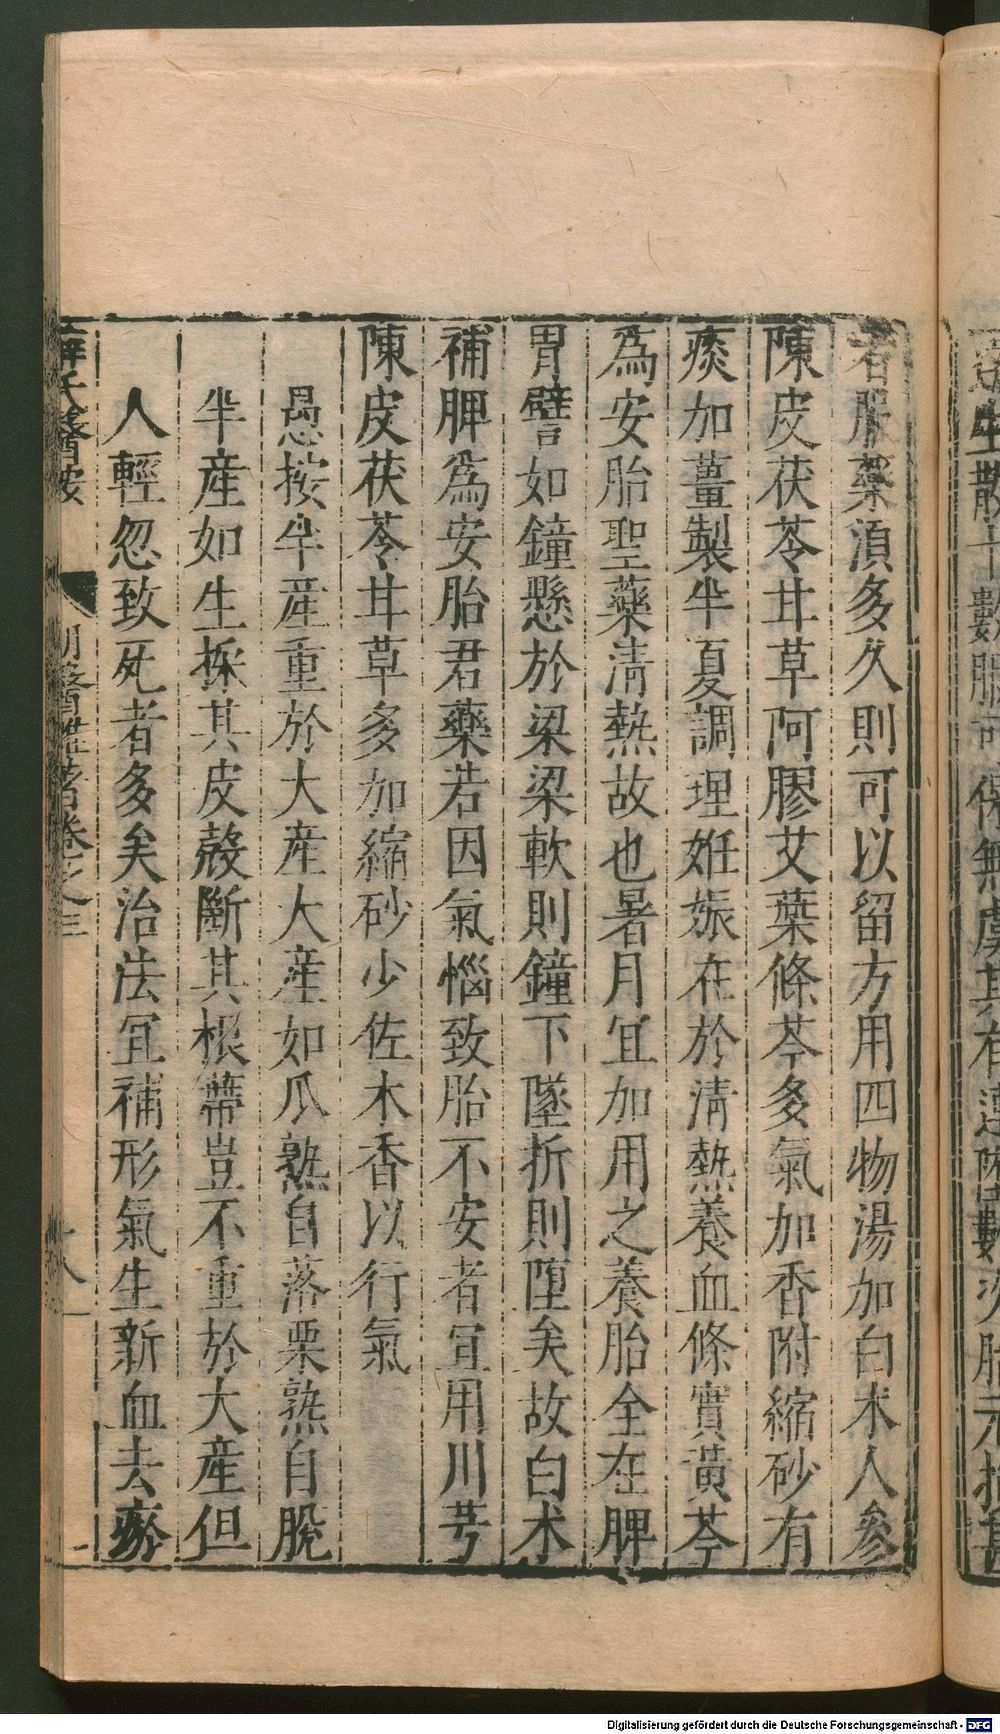 者服藥須多久則可以留方用四物湯加白术人參
陳皮茯苓甘草阿膠艾葉條芩多氣加香附縮砂有
痰加薑製半夏調理妊娠在於清熱養血條實黃芩
為安胎聖藥清熱故也暑月宜加用之養胎全在脾
胃譬如鐘懸於梁梁軟則鐘下墜折則墮矣故白术
補脾爲安胎君藥若因氣惱致胎不安者宜用川芎
陳皮茯苓甘草多加縮砂少佐木香以行氣
愚按半産重於大産大産如瓜熟自落栗熟自脫
半産如生採其皮殼斷其根蒂豈不重於大産但
人輕忽致死者多矣治法宜補形氣生新血去瘀
薛氏醫按
明醫雜著卷之三
十八
Digitalisierung gefördert durch die Deutsche Forschungsgemeinschaft - DFG